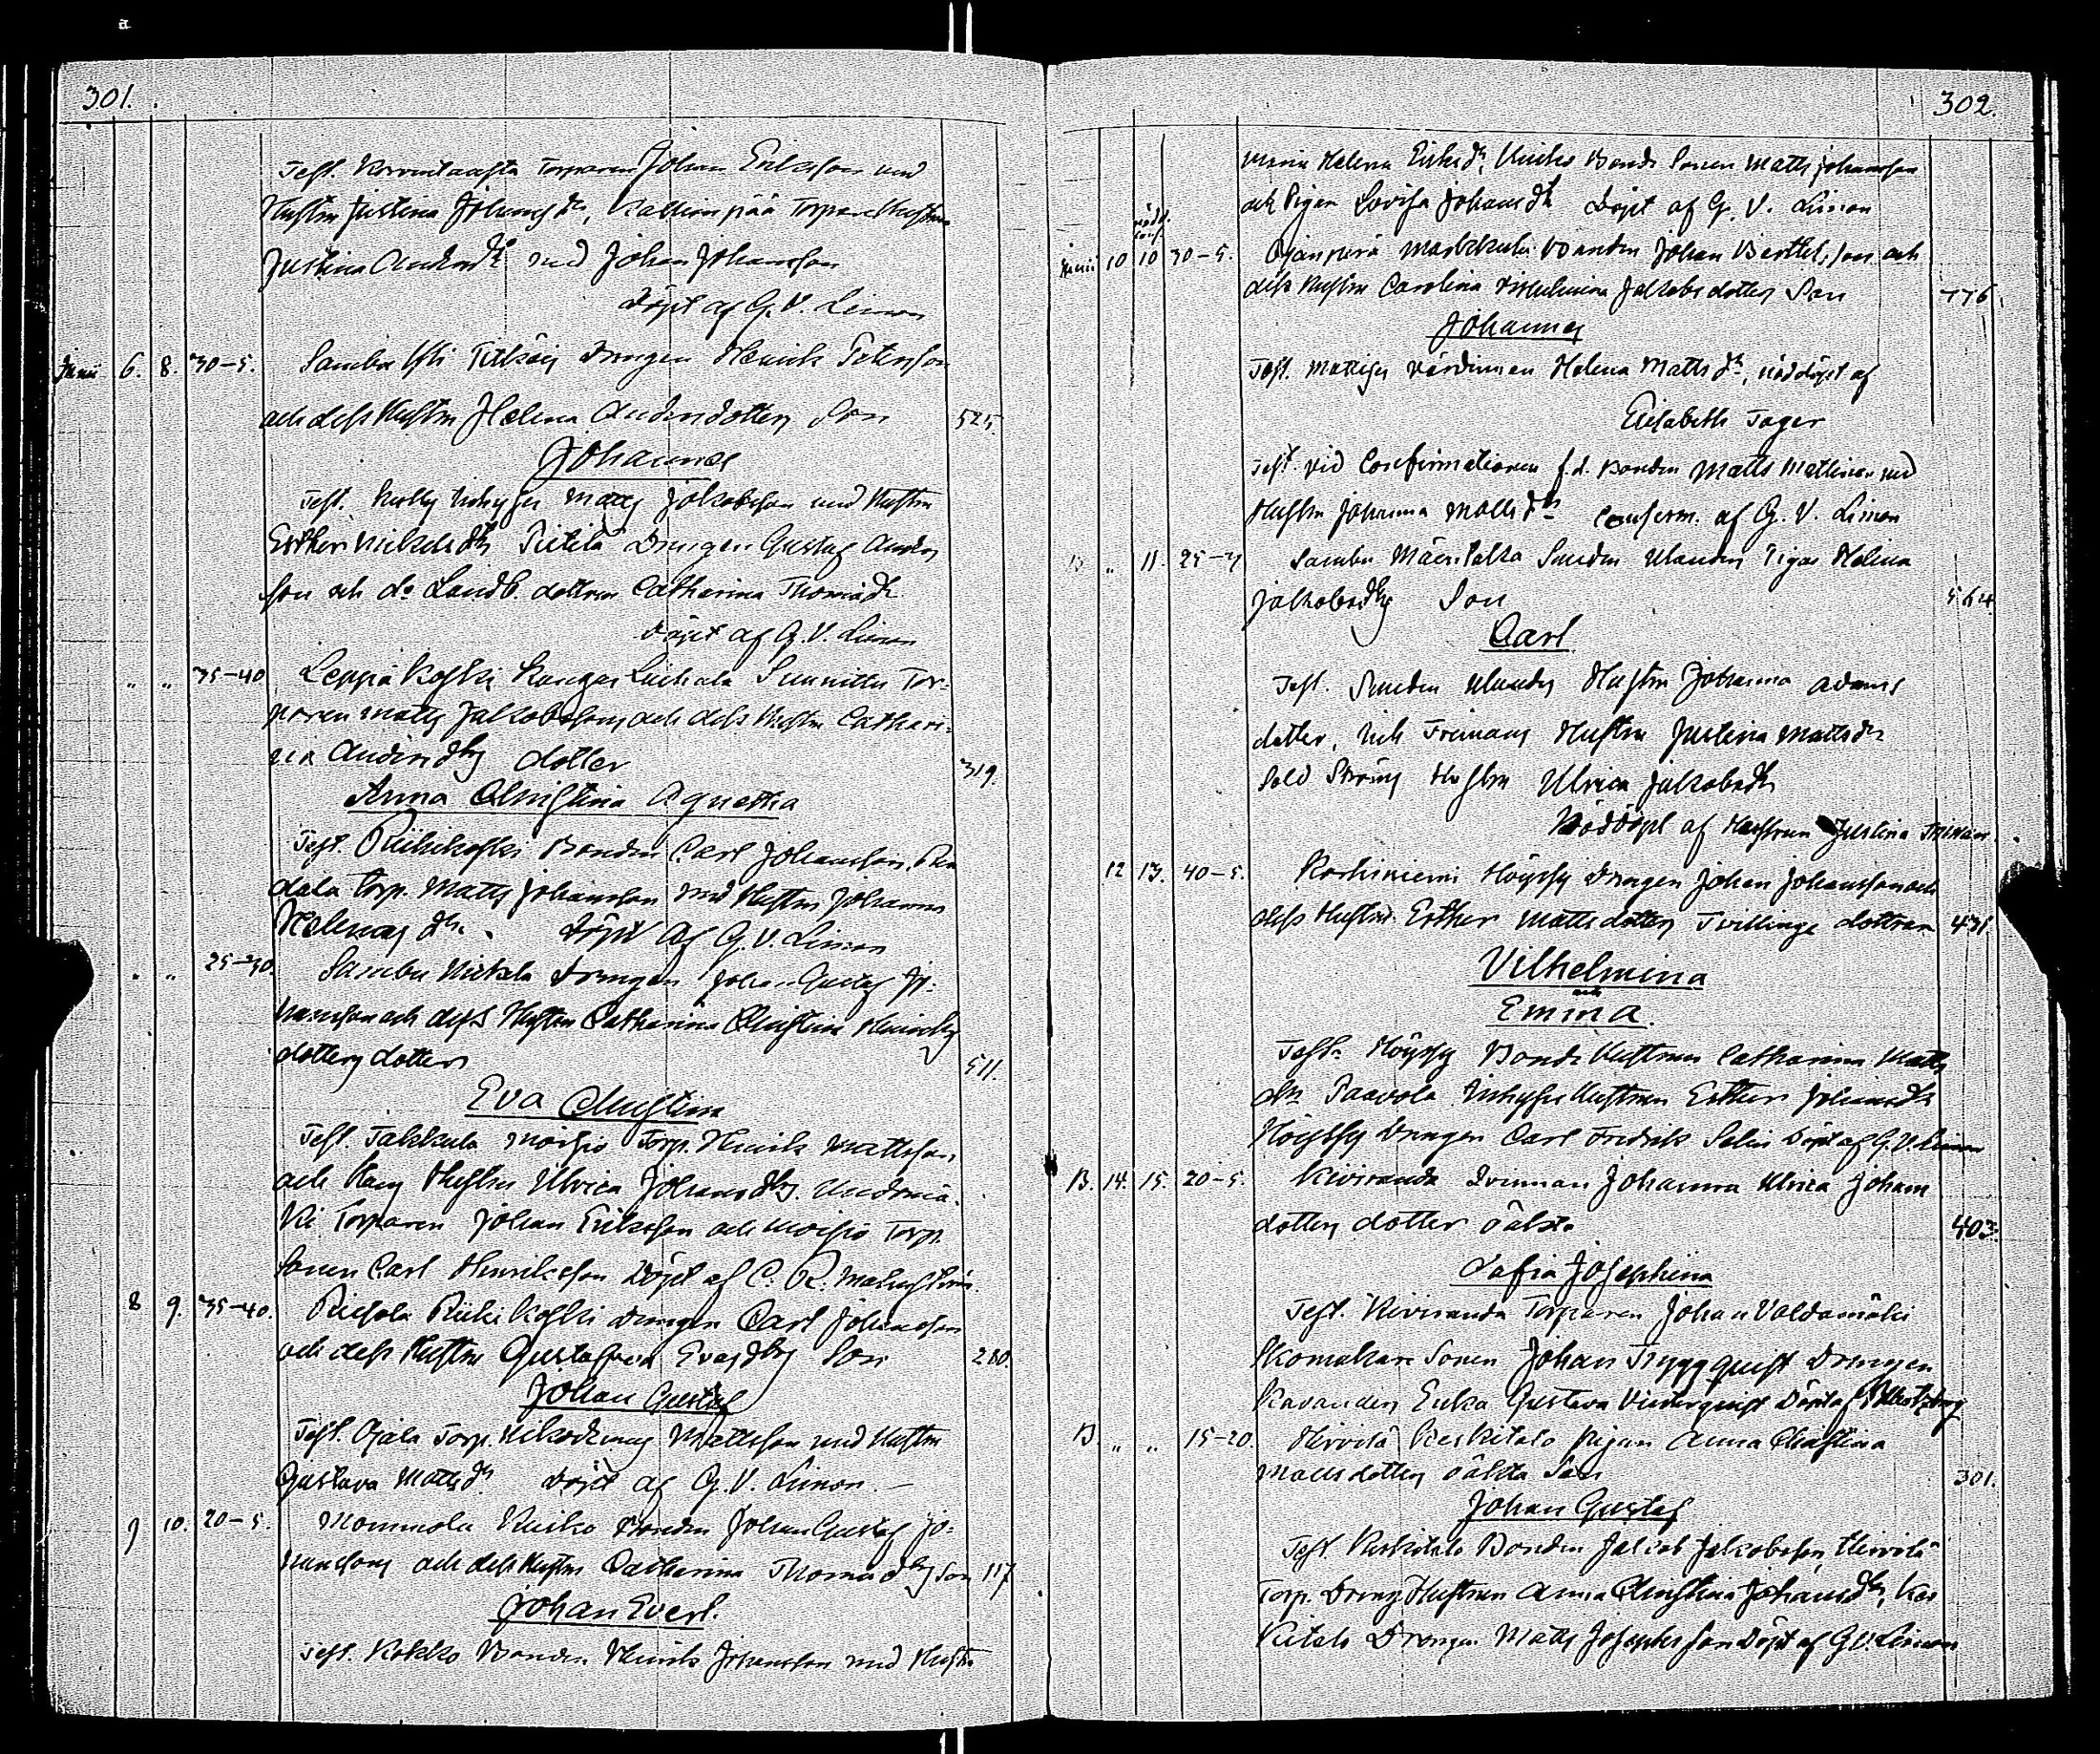 a
301.
Test. Torparen Johan Eriksson med
Hustru Justina Johansdr, Kallionpää Torpare Hustrun
Justina Andersdr med Johan Johansson
Döpt af G. V. Limon
Junii 6. 8. 30-5. Sambu Drengen Henrik Petersson
och dess Hustru Helena Andersdotters Son 525.
Johannes
Test. Matts Jakobsson med Hustru
Esther Mickelsdr Pietilä Drengen Gustaf Anders
son och do Landb. dottren Catharina Thomasdr
Döpt af G. V. Limon
" " 35-40 Leppäkoski Kangas Suunittu Tor-
paren Matts Jakobssons och dess Hustru Cathari-
na Andersdrs dotter 319.
Anna Christina Agnetha
Test. Riihikoski Bonden Carl Johansson,
dala Torp. Matts Johansson med Hustru Johanna
Helenas dr. Döpt af G. V. Limon
" " 25-30. Sambu Mickola Drengen Johan Gustaf Jo-
hansson och dess Hustru Catharina Christina Henriks
dotters dotter 511.
Eva Christina
Test. Takkula Moisio Torp. Henrik Mattsson
och hans Hustru Ulrica Johansdrs.
ki Torparen Johan Eriksson och Moisio Torp.
sonen Carl Henriksson Döpt af C. R. Malmström.
8 9. 35-40. Riihikoski Drengen Carl Johansson
och dess Hustru Gustafva Evasdrs Son 280.
Johan Gustaf
Test. Ojala Torp. Nikodemus Mattsson med Hustru
Gustava Mattsdr. Döpt af G. V. Limon.
9 10. 20-5. Mommola Kuiko Bonden Johan Gustaf Jo-
hanssons och dess Hustru Catharina Thomasdrs Son 117
Johan Evert.
Test. Kokko Bonden Henrik Johansson med Hustru
302.
Maria Helena Eriksdr, Bonde Sonen Matts Johansson
och Pigan Lovisa Johansdr Döpt af G. V. Limon
nödd.
conf.
Junii 10 10 30-5. Ojanperä Markkula Bonden Johan Berthelsson och
dess Hustru Carolina Vilhelmina Jakobsdotters Son 776.
Johannes
Test. värdinnan Helena Mattsdr, nöddöpt af
Elisabeth Jager
Test. vid Confirmationen f.d. Bonden Matts Mattsson med
Hustru Johanna Mattsdr Conferm. af G. V. Limon
" 11. 25- Sambu Smeden Pigas Helena
Jakobsdrs Son 564
Carl
Test. Smeden Hustru Johanna Adams
dotter, Hustru Justina Mattsdr
Sold Ström Hustru Ulrica Jakobsdr
Nöddöpt af Hustrun Justina
12 13. 40-5. Korkiniemi Höyssy Drengen Johan Johansson och
dess Hustru Esther Mattsdotters Tvillinge dottrar 431.
Vilhelmina
och
Emina.
Test. Höyssy Bonde Hustrun Catharina Matts
dr. Paavola Hustrun Esther Johansdr
Höyssy Drengen Carl Fredrik Selin Döpt af G. V. Limon
13. 14. 15. 20-5. Kiviranda Qvinnan Johanna Ulrica Johans
dotters dotter oäkt. 403.
Sofia Josephina
Test. Kiviranda Torparen Johan Valdamäki
Skomakare Sonen Johan Tryggquist Drengen
Kavanders Erika Gustava Vinterquist Döpt af
13. " " 15-20. Hirvilä Keskitalo Pigan Anna Christina
Mattsdotters oäkta Son 301.
Johan Gustaf
Test. Keskitalo Bonden Jakob Jakobsson, Hirvilä
Torp. Dreng Hustrun Anna Christina Johansdr, Kes
kitalo Drengen Matts Josephsson Döpt af G. V. Limon